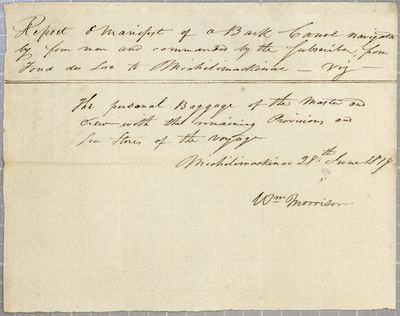 Report & Manifest of a Bark Canoe navigated
by four men and commanded by the Subscriber, from
Fond du Lac to Michilimakinac — viz
The personal Baggage of the Master and
Crew with the remaining Provisions and
Sea Stores of the voyage
Michilimackinac 28th June 1819
Wm Morrison